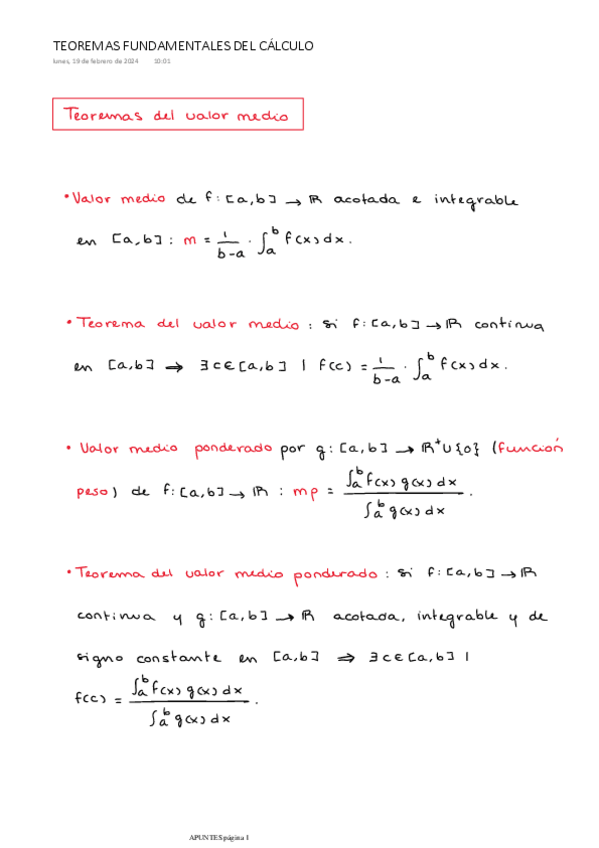 TEOREMAS FUNDAMENTALES DEL CÁLCULO
lunes, 19 de febrero de 2024 10:01
Teoremas del valor medio
• Valor medio de f: [a,b] → ℝ acotada e integrable
en [a,b] : m = 1/(b-a) · ∫_a^b f(x) dx.
• Teorema del valor medio : si f: [a,b] → ℝ continua
en [a,b] ⇒ ∃ c ∈ [a,b] | f(c) = 1/(b-a) · ∫_a^b f(x) dx.
• Valor medio ponderado por g: [a,b] → ℝ⁺∪{0} (función
peso) de f: [a,b] → ℝ : mp = ∫_a^b f(x) g(x) dx / ∫_a^b g(x) dx.
• Teorema del valor medio ponderado : si f: [a,b] → ℝ
continua y g: [a,b] → ℝ acotada, integrable y de
signo constante en [a,b] ⇒ ∃ c ∈ [a,b] |
f(c) = ∫_a^b f(x) g(x) dx / ∫_a^b g(x) dx.
APUNTES página 1